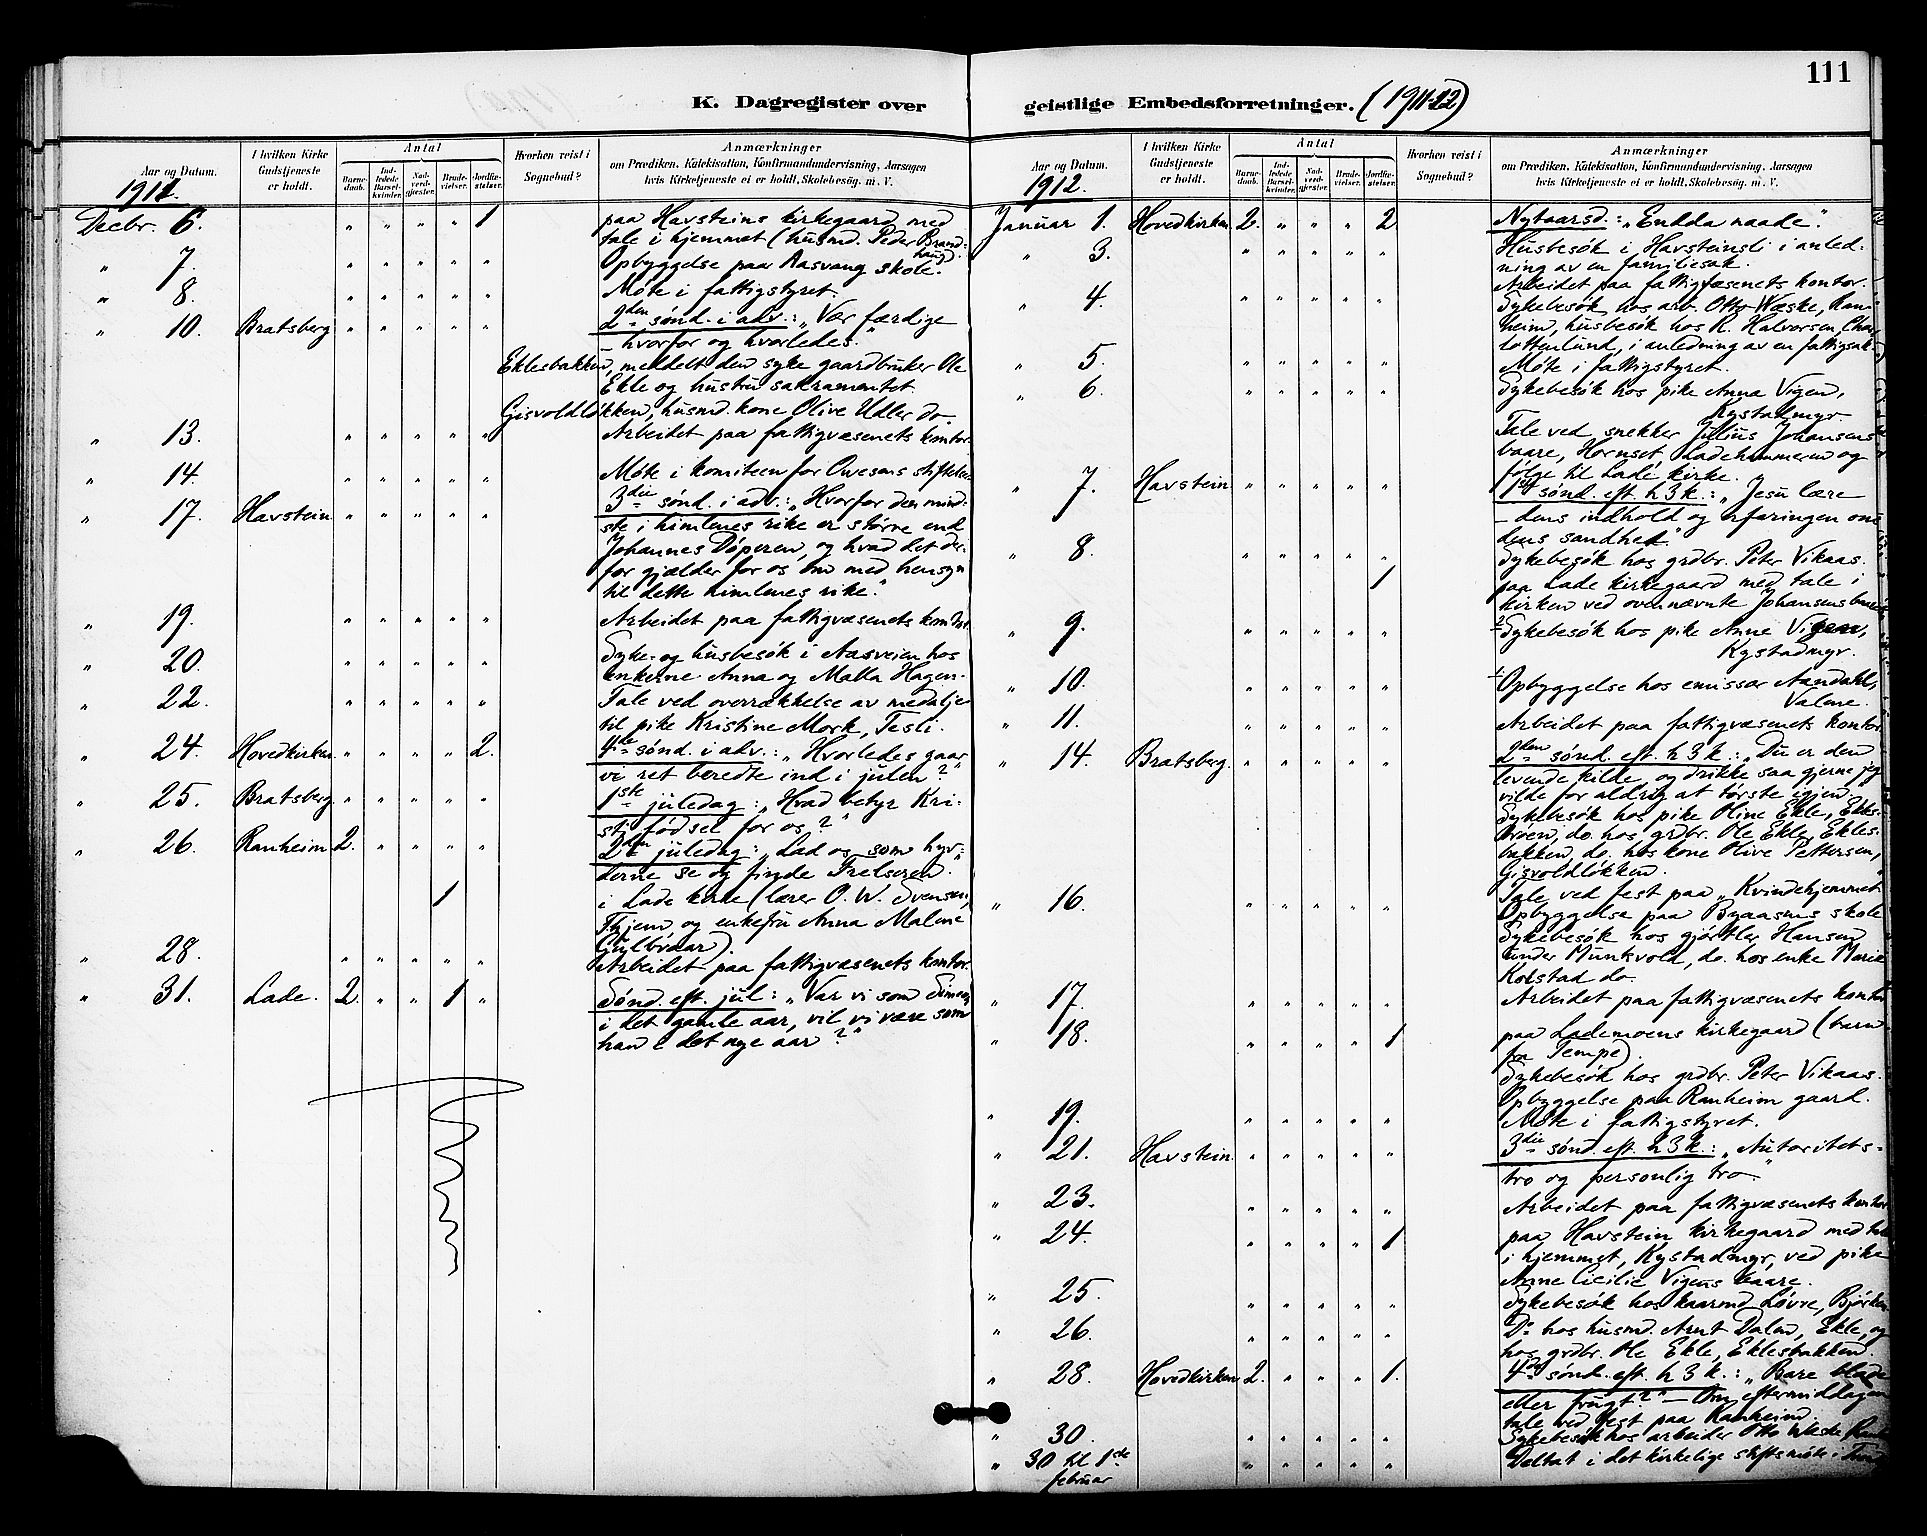 111
K. Dagregister over
Aar og Datum.
I hvilken Kirke Gudstjeneste er holdt.
Antal
Barne-daab.
Ind-ledede Barsel-kvinder.
Nad-verd-gjester.
Brude-vielser.
Jordfæ-stelser.
Hvorhen reist i Sognebud?
Anmærkninger
om Prædiken, Katekisation, Konfirmandundervisning, Aarsagen
hvis Kirketjeneste ei er holdt, Skolebesøg. m. V.
1911.
Decbr. 6. " " " " 1 paa Havsteins kirkegaard med
tale i hjemmet (husmd. Peder Brand-
haug).
" 7. " " " " " Opbyggelse paa Aasvang skole.
" 8. " " " " " Møte i fattigstyret.
" 10. Bratsberg " " " " " 2den sønd. i adv.: „Vær færdige
– hvorfor og hvorledes."
Eklesbakken, meddelt den syke gaardbruker Ole
Ekle og hustru sakramentet.
Gisvoldløkken, husmd. kone Olive Udler do
" 13. " " " " " Arbeidet paa fattigvæsenets kontor.
" 14. " " " " " Møte i komiteen for Owesens stiftelse.
" 17. Havstein " " " " " 3die sønd. i adv.: „Hvorfor den mind-
ste i himlenes rike er større end
Johannes Døperen, og hvad det der-
for gjælder for os om med hensyn
til dette himlenes rike."
" 19. " " " " " Arbeidet paa fattigvæsenets kontor.
" 20. " " " " " Syke- og husbesøk i Aasveien hos
enkerne Anna og Malla Hagen.
" 22. " " " " " Tale ved overrækkelse av medalje
til pike Kristine Mork, Tesli.
" 24. Hovedkirken " " " " 2. 4de sønd. i adv.: „Hvorledes gaar
vi ret beredte ind i julen?"
" 25. Bratsberg " " " " " 1ste juledag: „Hvad betyr Kri-
sti fødsel for os?"
" 26. Ranheim 2. " " " " 2den juledag: „Lad os som hyr-
derne se og finde Frelseren."
1 i Lade kirke (lærer O. W. Svensen,
Thjem, og enkefru Anna Malene
Gulbraar).
" 28. " " " " " Arbeidet paa fattigvæsenets kontor.
" 31. Lade. 2. " " 1 " Sønd. eft. jul: „Var vi som Simeon
i det gamle aar, vil vi være som
han i det nye aar?"
geistlige Embedsforretninger. (1911-12)
Aar og Datum.
I hvilken Kirke Gudstjeneste er holdt.
Antal
Barne-daab.
Ind-ledede Barsel-kvinder.
Nad-verd-gjester.
Brude-vielser.
Jordfæ-stelser.
Hvorhen reist i Sognebud?
Anmærkninger
om Prædiken, Katekisation, Konfirmandundervisning, Aarsagen
hvis Kirketjeneste ei er holdt, Skolebesøg. m. V.
1912.
Januar 1. Hovedkirken 2. " " " 2 Nytaarsd.: „Endda naade".
" 3. " " " " " Husbesøk i Havsteinsli i anled-
ning av en familiesak.
Arbeidet paa fattigvæsenets kontor.
" 4. " " " " " Sykebesøk hos arb. Otto Wæske, Ran-
heim, husbesøk hos K. Halvorsen Char-
lottenlund, i anledning av en fattigsak.
" 5. " " " " " Møte i fattigstyret.
" 6. " " " " " Sykebesøk hos pike Anna Vigen,
Kystadmyr.
Tale ved snekker Julius Johansens
baare, Hornset, Ladehammeren og
følge til Lade kirke.
" 7. Havstein " " " " " 1ste sønd. eft. h 3 k.: „Jesu lære
– dens indhold og erfaringen om
dens sandhet."
" 8. " " " " " Sykebesøk hos grdbr. Peter Vikaas.
1 paa Lade kirkegaard med tale i
kirken ved ovennævnte Johansens baare
" 9. " " " " " Sykebesøk hos pike Anne Vigen,
Kystadmyr.
" 10. " " " " " Opbyggelse hos emissær Aandahl,
Valene.
" 11. " " " " " Arbeidet paa fattigvæsenets kontor.
" 14. Bratsberg. " " " " " 2den sønd. eft. h 3 k.: „Du er den
levende kilde, og drikke saa gjerne jeg
vilde for aldrig at tørste igjen."
Sykebesøk hos pike Oline Ekle, Ekles-
broen, do. hos grdbr. Ole Ekle, Ekles-
bakken, do. hos kone Olive Pettersen,
Gisvoldløkken.
" 16. " " " " " Tale ved fest paa „Kvindehjemmet"
Opbyggelse paa Byaasens skole
Sykebesøk hos gjørtler Hansen
under Munkvold, do. hos enke Marie
Kolstad do.
" 17. " " " " " Arbeidet paa fattigvæsenets kontor
" 18. " " " " 1 paa Lademoens kirkegaard (barn
fra Tempe).
Sykebesøk hos grdbr. Peter Vikaas.
Opbyggelse paa Ranheim gaard.
" 19. " " " " " Møte i fattigstyret.
" 21. Havstein. " " " " " 3die sønd. eft. h 3 k.: „Autoritets-
tro og personlig tro."
" 23. " " " " " Arbeidet paa fattigvæsenets kontor
" 24. " " " " 1 paa Havstein kirkegaard med tale
i hjemmet, Kystadmyr, ved pike
Anne Cicilie Vigens baare.
" 25. " " " " " Sykebesøk hos kaarmd. Løvre, Bjørken
" 26. " " " " " Do hos husmd. Arnt Dalen, Ekle, og
hos grdbr. Ole Ekle, Eklesbakken.
" 28. Hovedkirken 2. " " " 1. 4de sønd. eft. h 3 k.: „Bare blade
eller frugt?" – Om eftermiddagen
tale ved fest paa Ranheim.
" 30. " " " " " Sykebesøk hos arbeider Otto Wæske
" 30 til 1ste februar " " " " " Deltat i det kirkelige stiftsmøte i